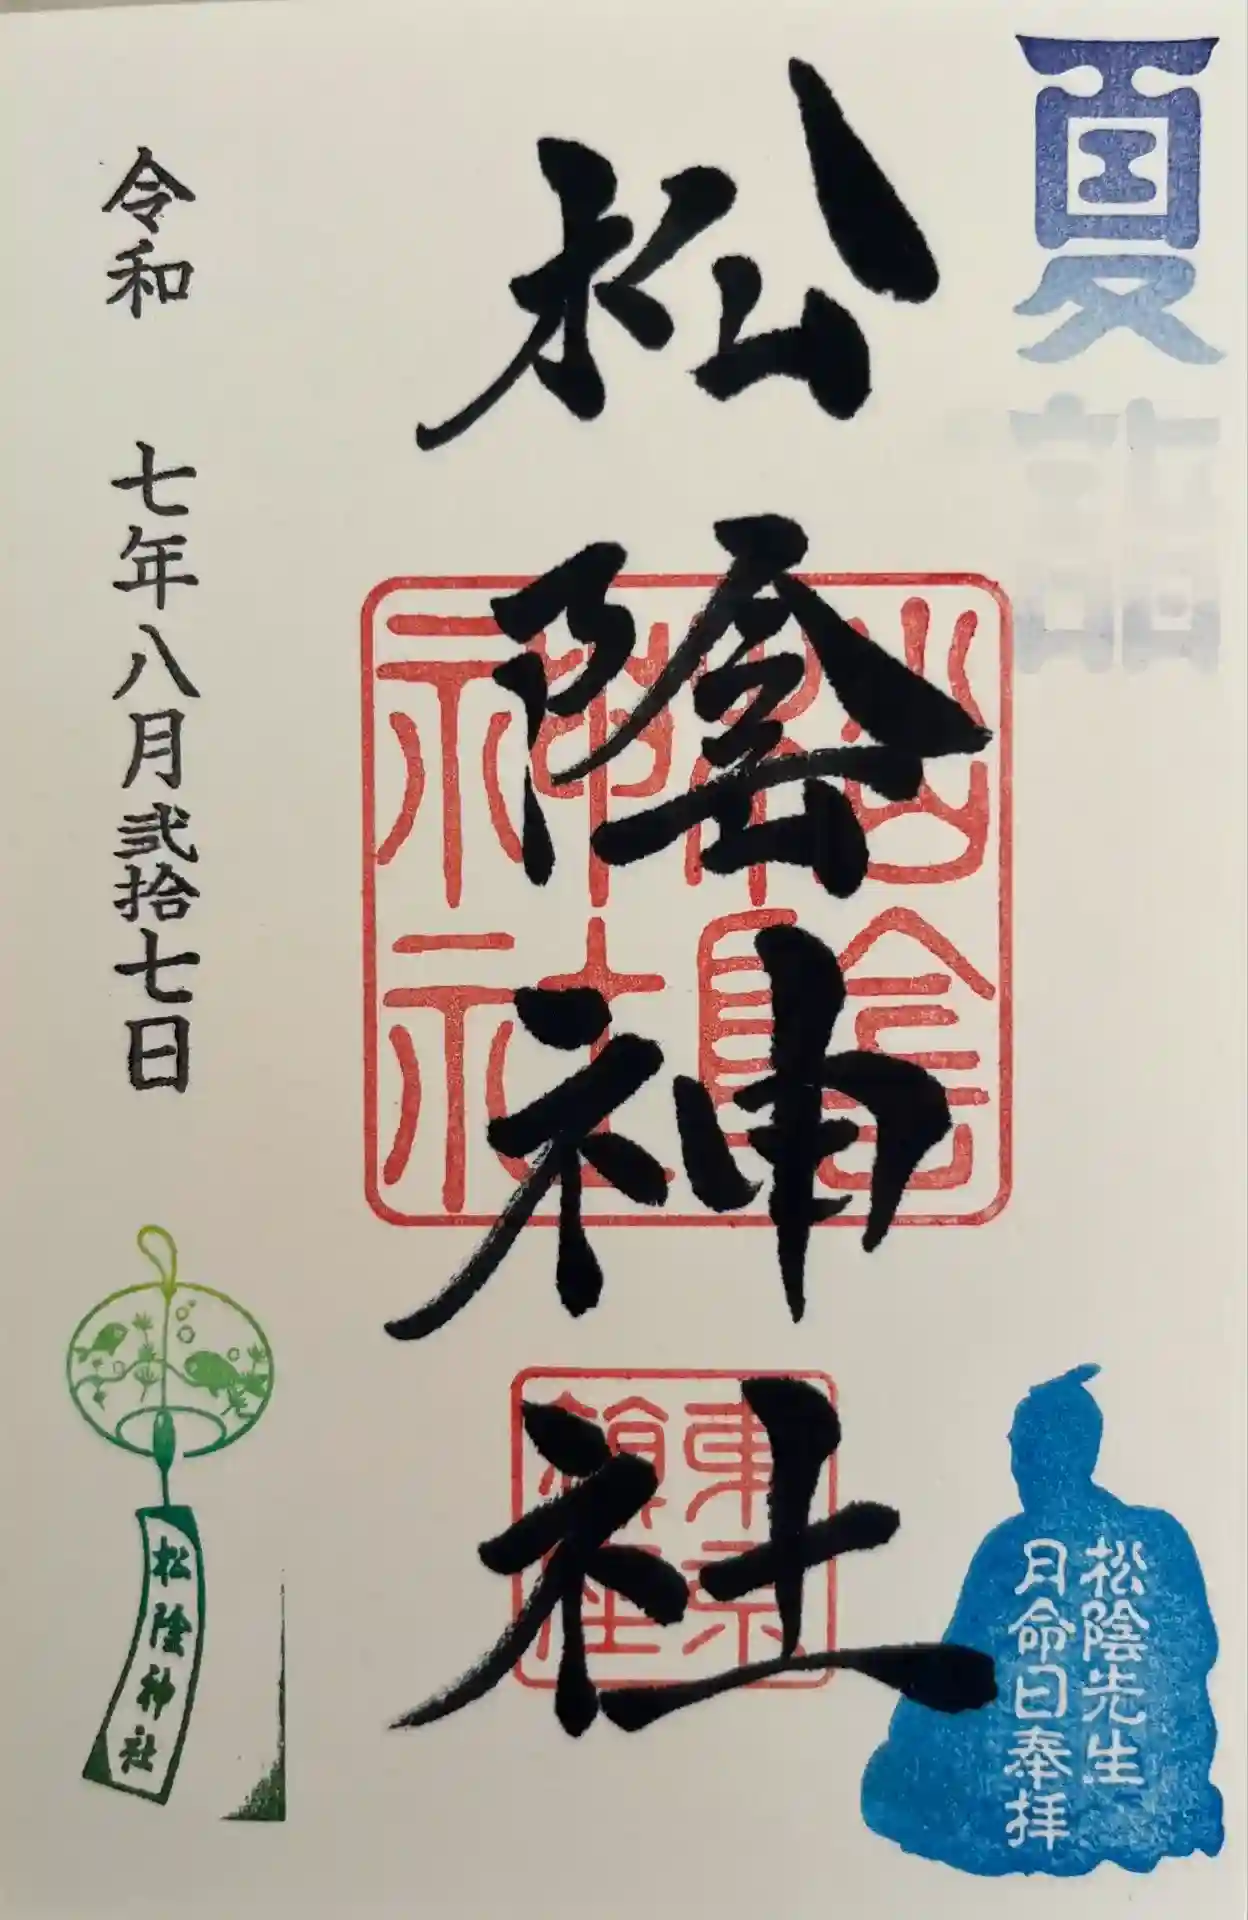 夏詣
松陰神社
松陰神社
東京鎮座
松陰先生
月命日奉拝
令和 七年八月弐拾七日
松陰神社